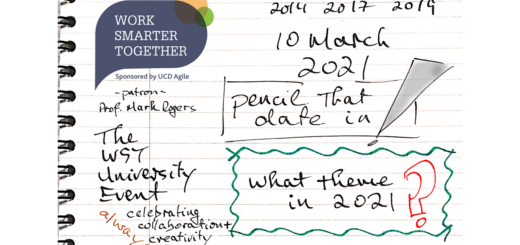 WORK
SMARTER
TOGETHER
Sponsored by UCD Agile
-patron-
Prof. Mark Rogers
The
WST
University
Event
celebrating
always collaboration+
creativity
2014 2017 2019
10 March
2021
pencil That
date in
what theme
in 2021 ?